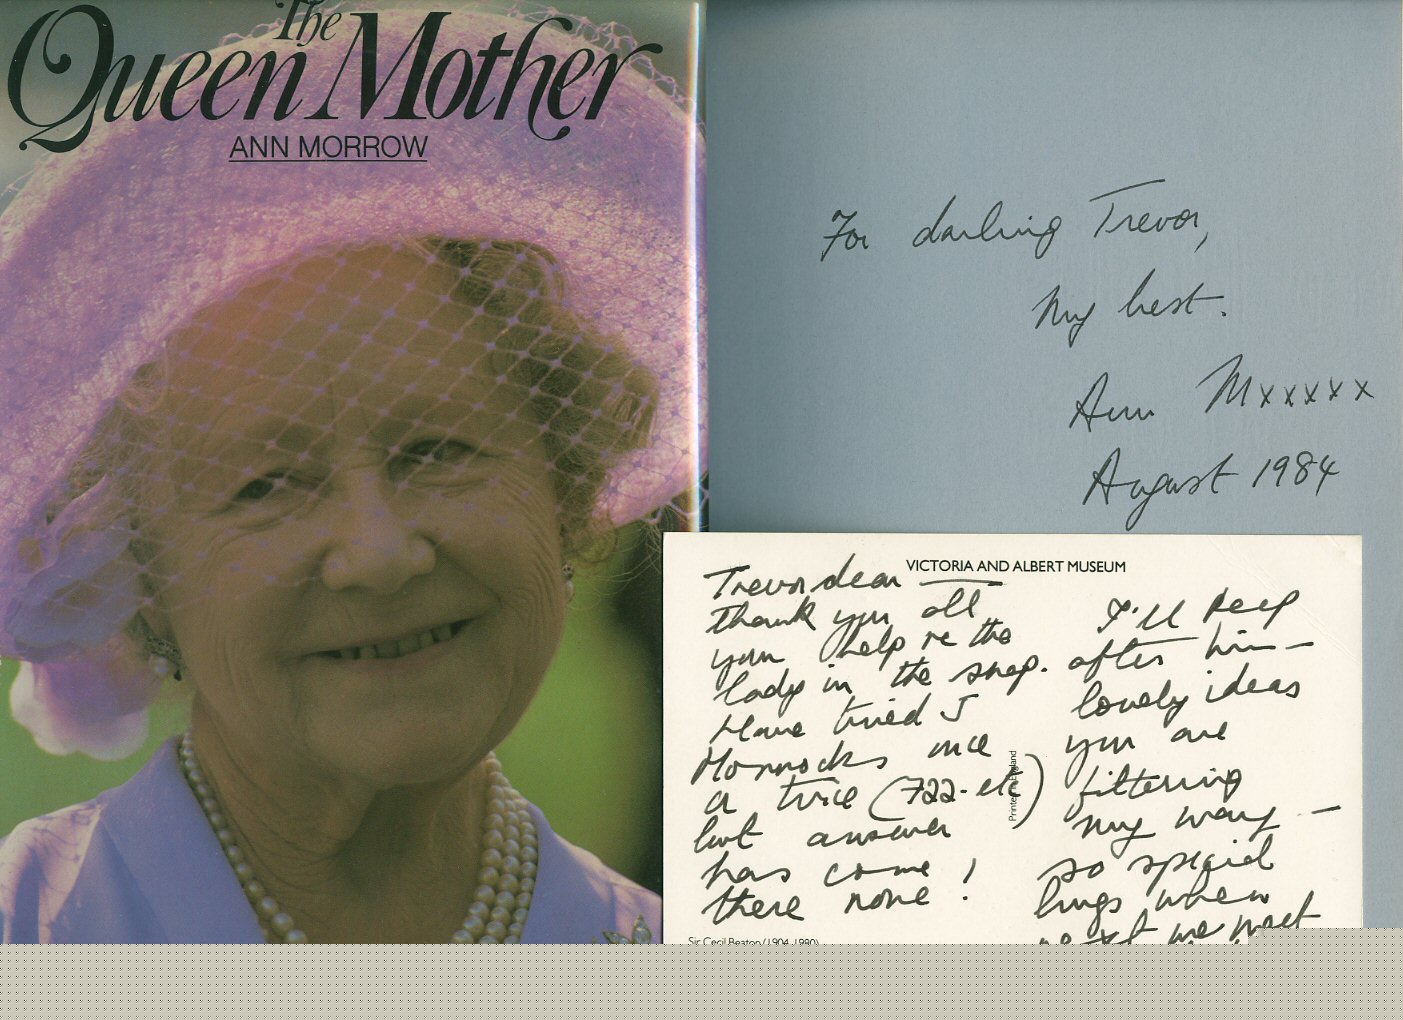 The
Queen Mother
ANN MORROW
For darling Trevor,
My best.
Ann Mxxxxx
August 1984
VICTORIA AND ALBERT MUSEUM
Trevor dear
thank you all
your help re the
lady in the shop.
Have tried J
Horrocks once
or twice (722-etc)
but answer
has come
there none!
I'll keep
after him —
lovely ideas
you are
filtering
my way —
so special
hugs when
next we meet
Printed in England
Sir Cecil Beaton (1904-1980)